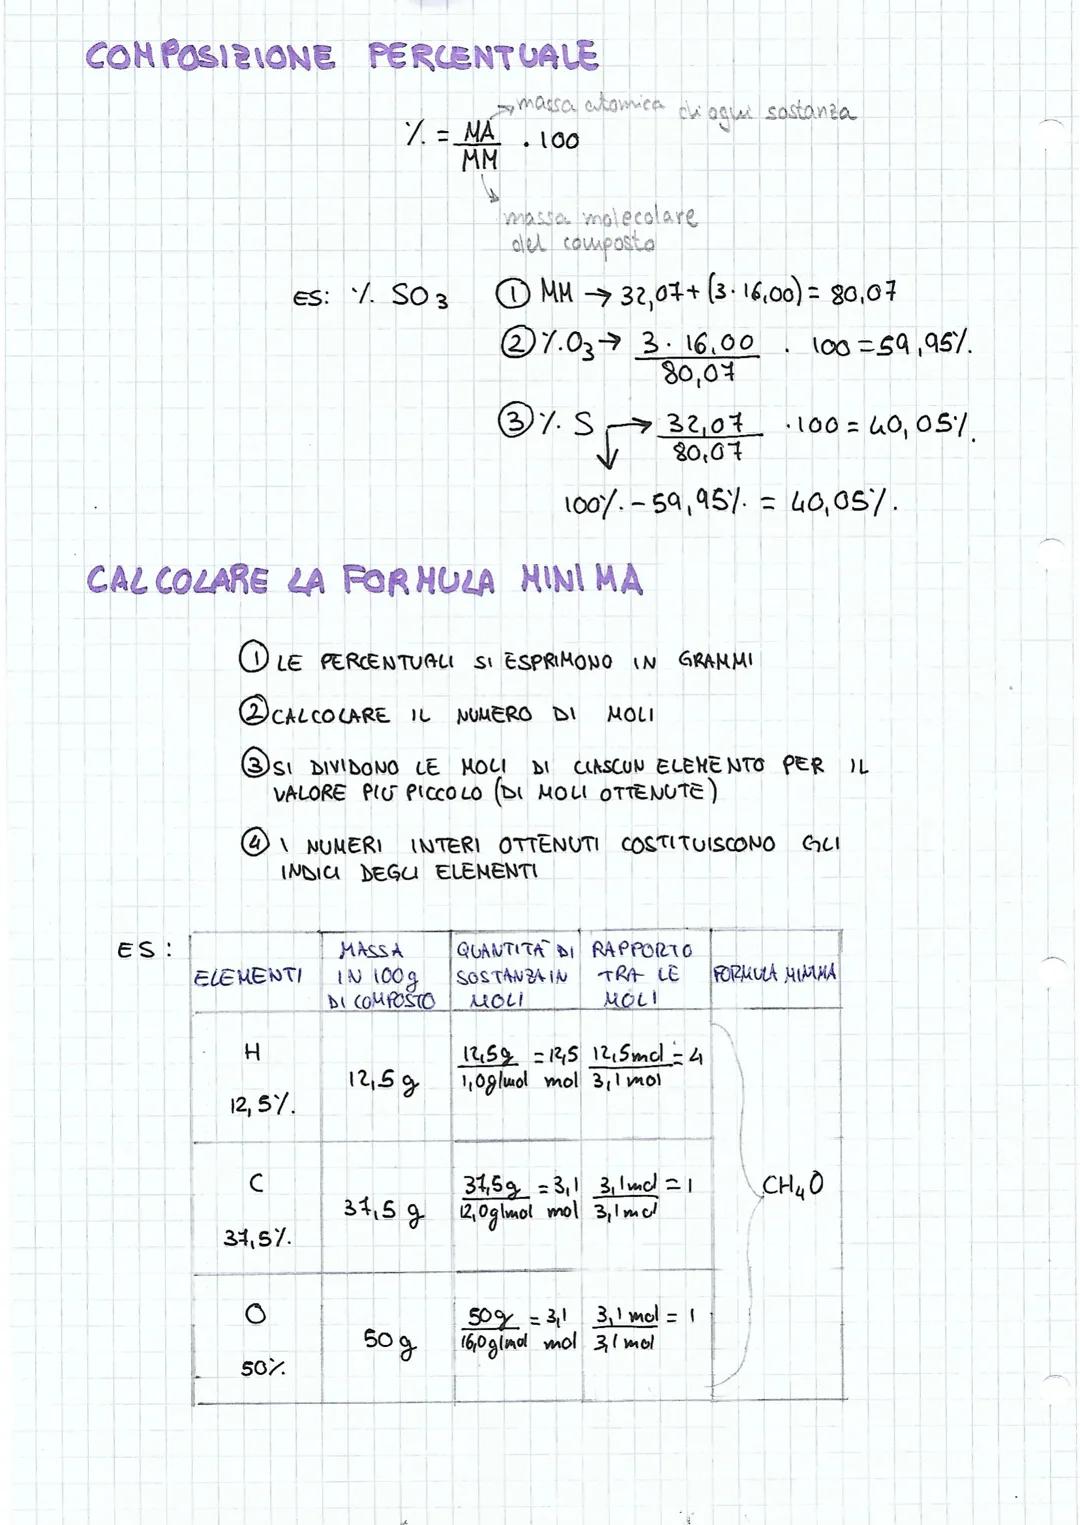 COMPOSIZIONE PERCENTUALE
massa atomica di ogni sostanza
% = MA/MM · 100
massa molecolare
del composto
ES: % SO3
① MM → 32,07+(3·16,00)= 80,07
② % O3 → 3·16,00/80,07 · 100 = 59,95%.
③ % S → 32,07/80,07 · 100 = 40,05%.
100% - 59,95% = 40,05%.
CALCOLARE LA FORMULA MINIMA
① LE PERCENTUALI SI ESPRIMONO IN GRAMMI
② CALCOLARE IL NUMERO DI MOLI
③ SI DIVIDONO LE MOLI DI CIASCUN ELEMENTO PER IL
VALORE PIÙ PICCOLO (DI MOLI OTTENUTE)
④ I NUMERI INTERI OTTENUTI COSTITUISCONO GLI
INDICI DEGLI ELEMENTI
ES:
ELEMENTI
MASSA
IN 100g
DI COMPOSTO
QUANTITÀ DI
SOSTANZA IN
MOLI
RAPPORTO
TRA LE
MOLI
FORMULA MINIMA
H
12,5%.
12,5 g
12,5g/1,0g/mol = 12,5 mol
12,5mol/3,1 mol = 4
C
37,5%.
37,5 g
37,5g/12,0g/mol = 3,1 mol
3,1mol/3,1mol = 1
CH4O
O
50%.
50 g
50g/16,0g/mol = 3,1 mol
3,1 mol/3,1 mol = 1